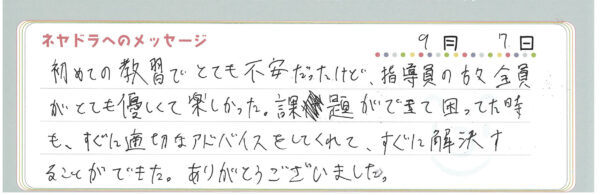 ネヤドラへのメッセージ
9月 7日
初めての教習でとても不安だったけど、指導員の方全員
がとても優しくて楽しかった。課題ができて困ってた時
も、すぐに適切なアドバイスをしてくれて、すぐに解決す
ることができた。ありがとうございました。